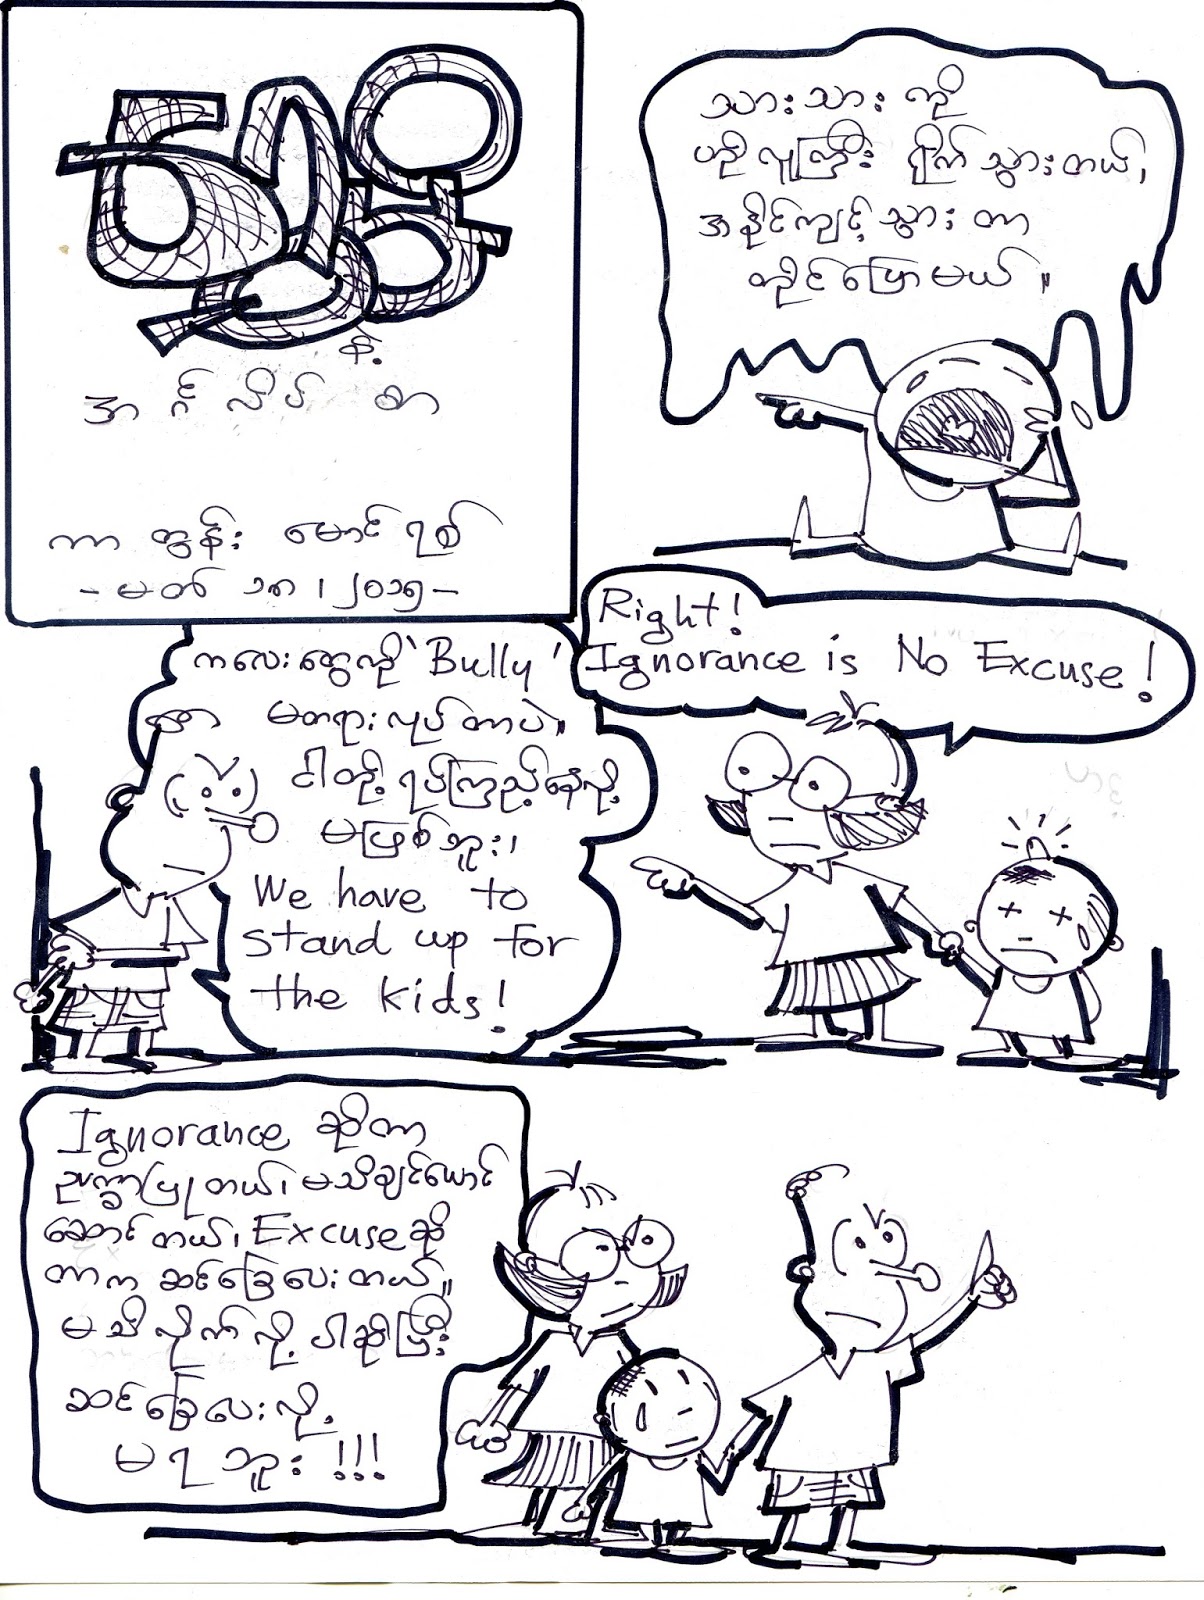 အင်္ဂလိပ် စာ
ကာတွန်း မောင်ရစ်
- မတ် ၁၈၊ ၂၀၁၅ -
သားသား ကို
ဟိုလူကြီး ရိုက်သွားတယ်၊
အနိုင်ကျင့်သွားတာ
တိုင်ပြောမယ်။
Right!
Ignorance is No Excuse!
ကလေးတွေကို 'Bully'
တာ မတရားလုပ်တာပဲ။
ငါတို့ ရပ်ကြည့်နေလို့
မဖြစ်ဘူး၊
We have to
stand up for
the kids!
Ignorance ဆိုတာ
ဥပက္ခာပြုတယ်၊ မသိချင်ယောင်
ဆောင်တယ်၊ Excuse ဆို
တာက ဆင်ခြေပေးတယ်။
မသိလိုက်လို့ ပါဆိုပြီး
ဆင်ခြေပေးလို့
မရဘူး !!!